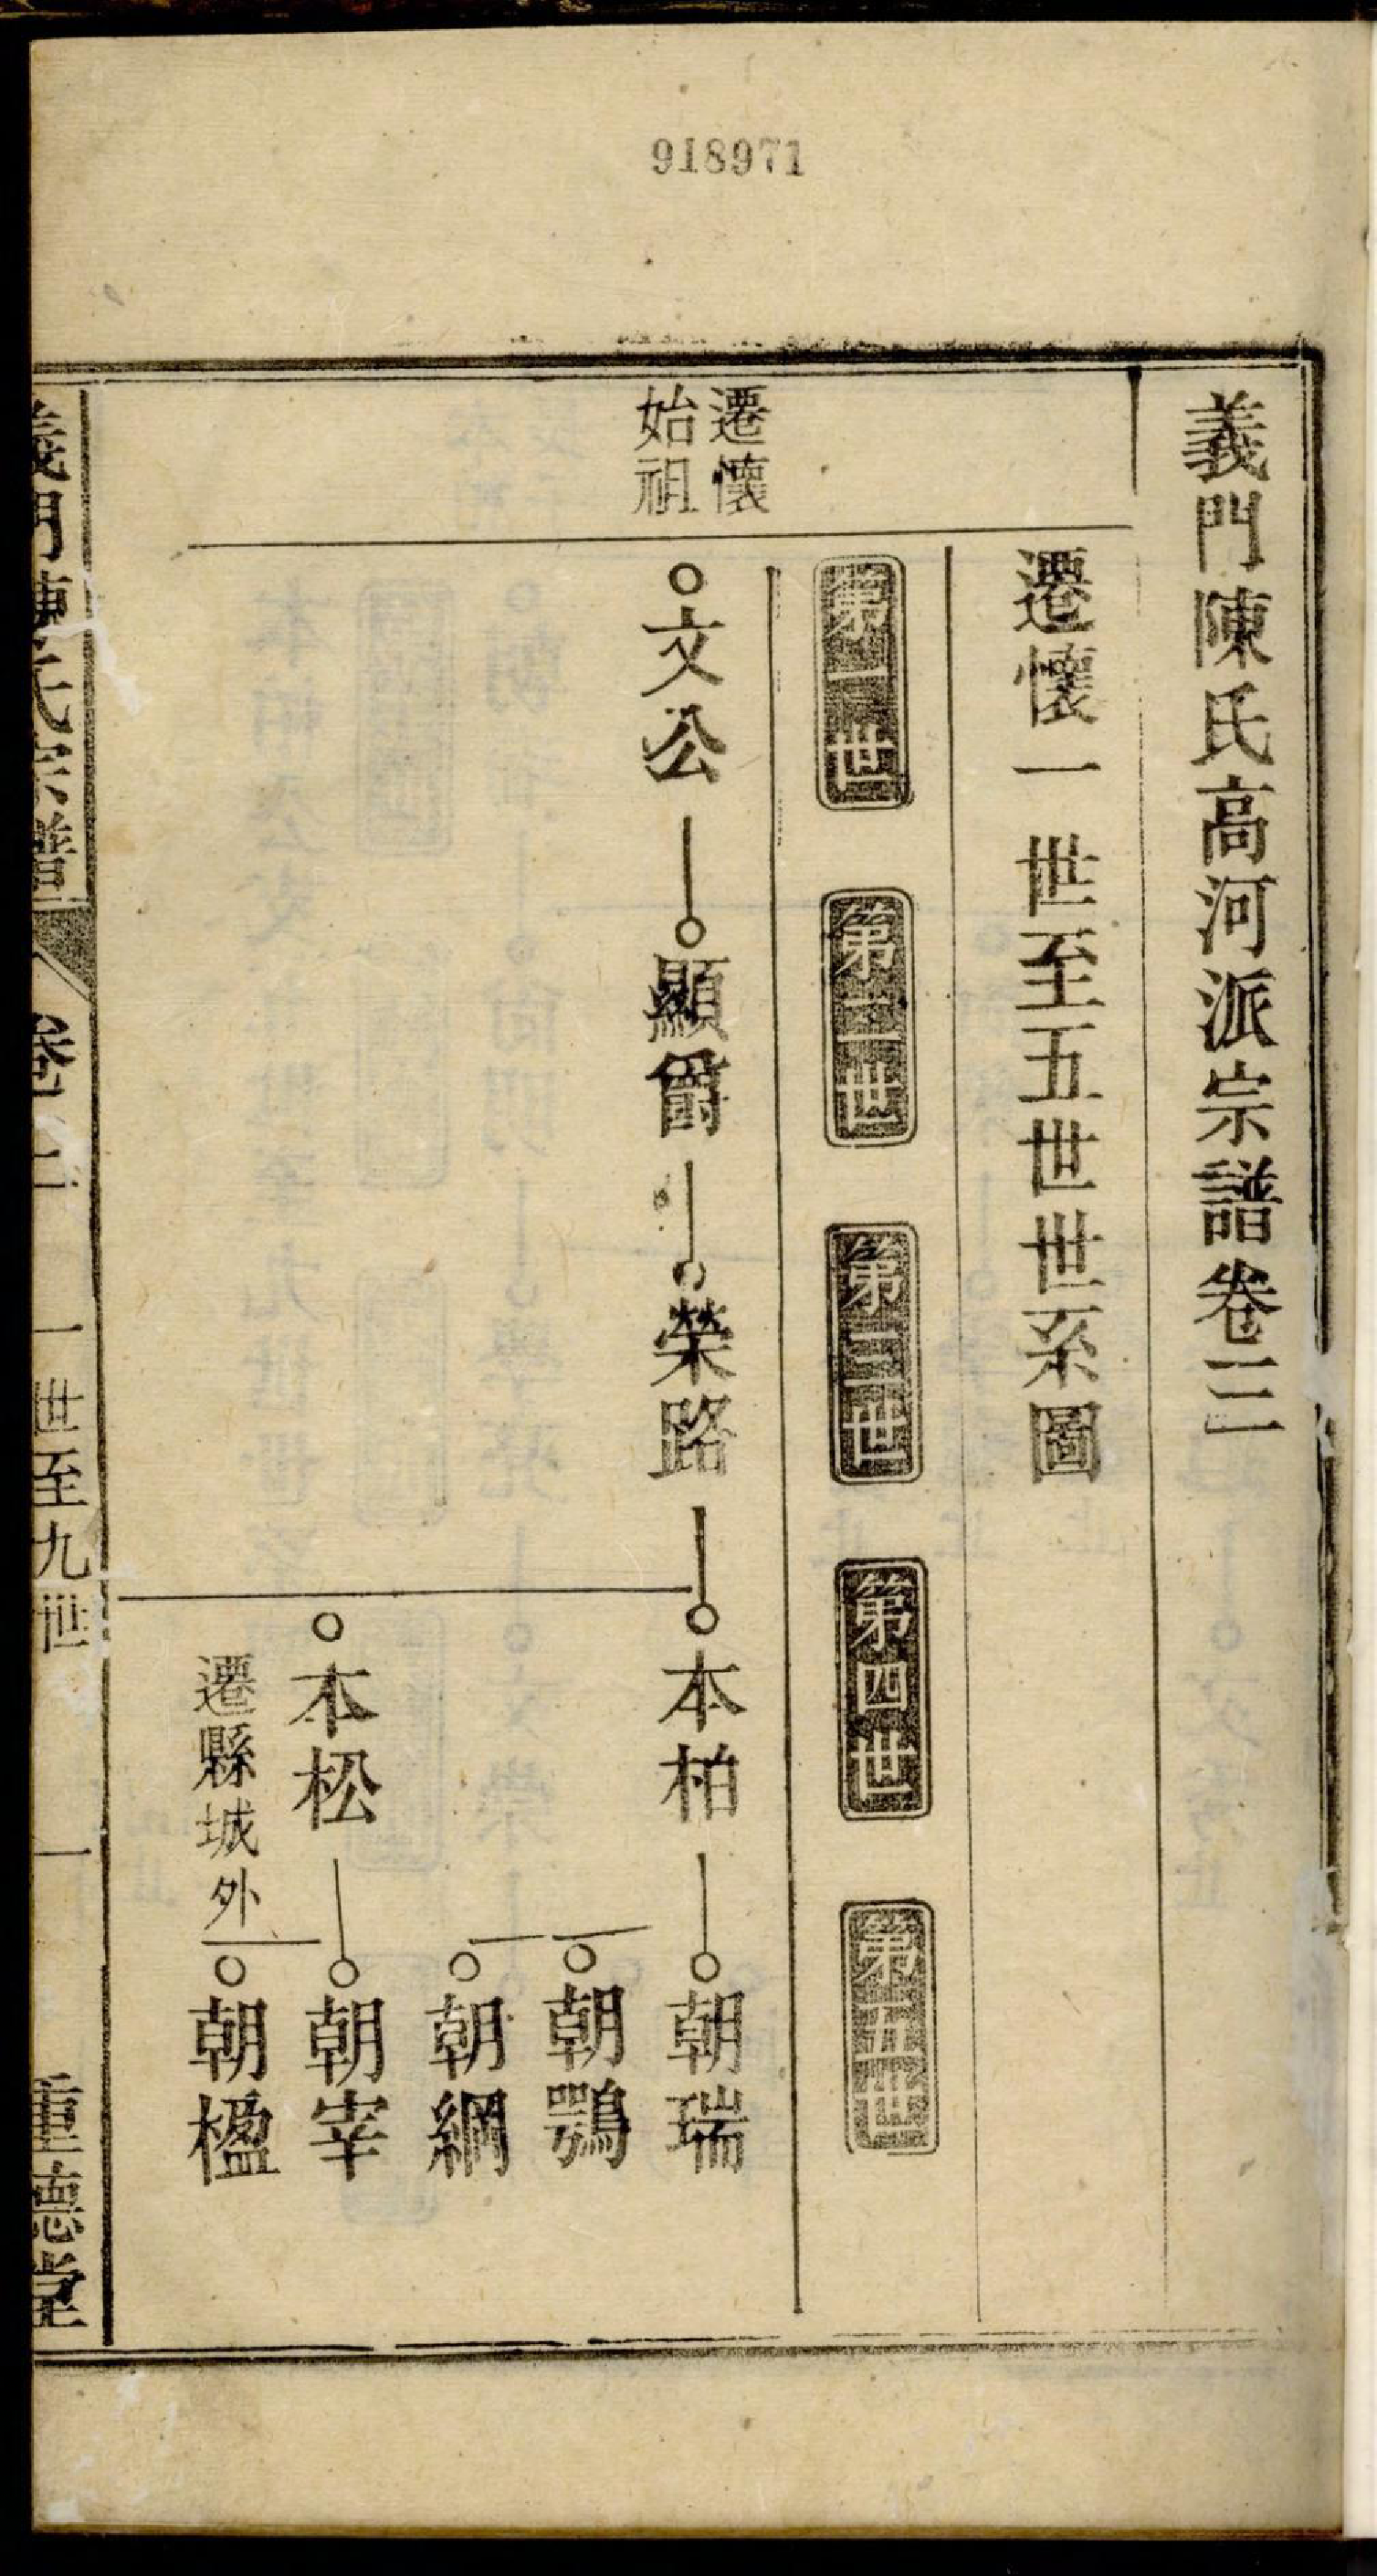 918971
義門陳氏高河派宗譜卷三
遷懷一世至五世世系圖
第一世
第二世
第三世
第四世
第五世
遷懷
始祖
文公
顯爵
榮路
本柏
朝瑞
朝鶚
朝綱
本松
遷縣城外
朝宰
朝楹
義門陳氏宗譜
卷三
一世至九世
一
重德堂